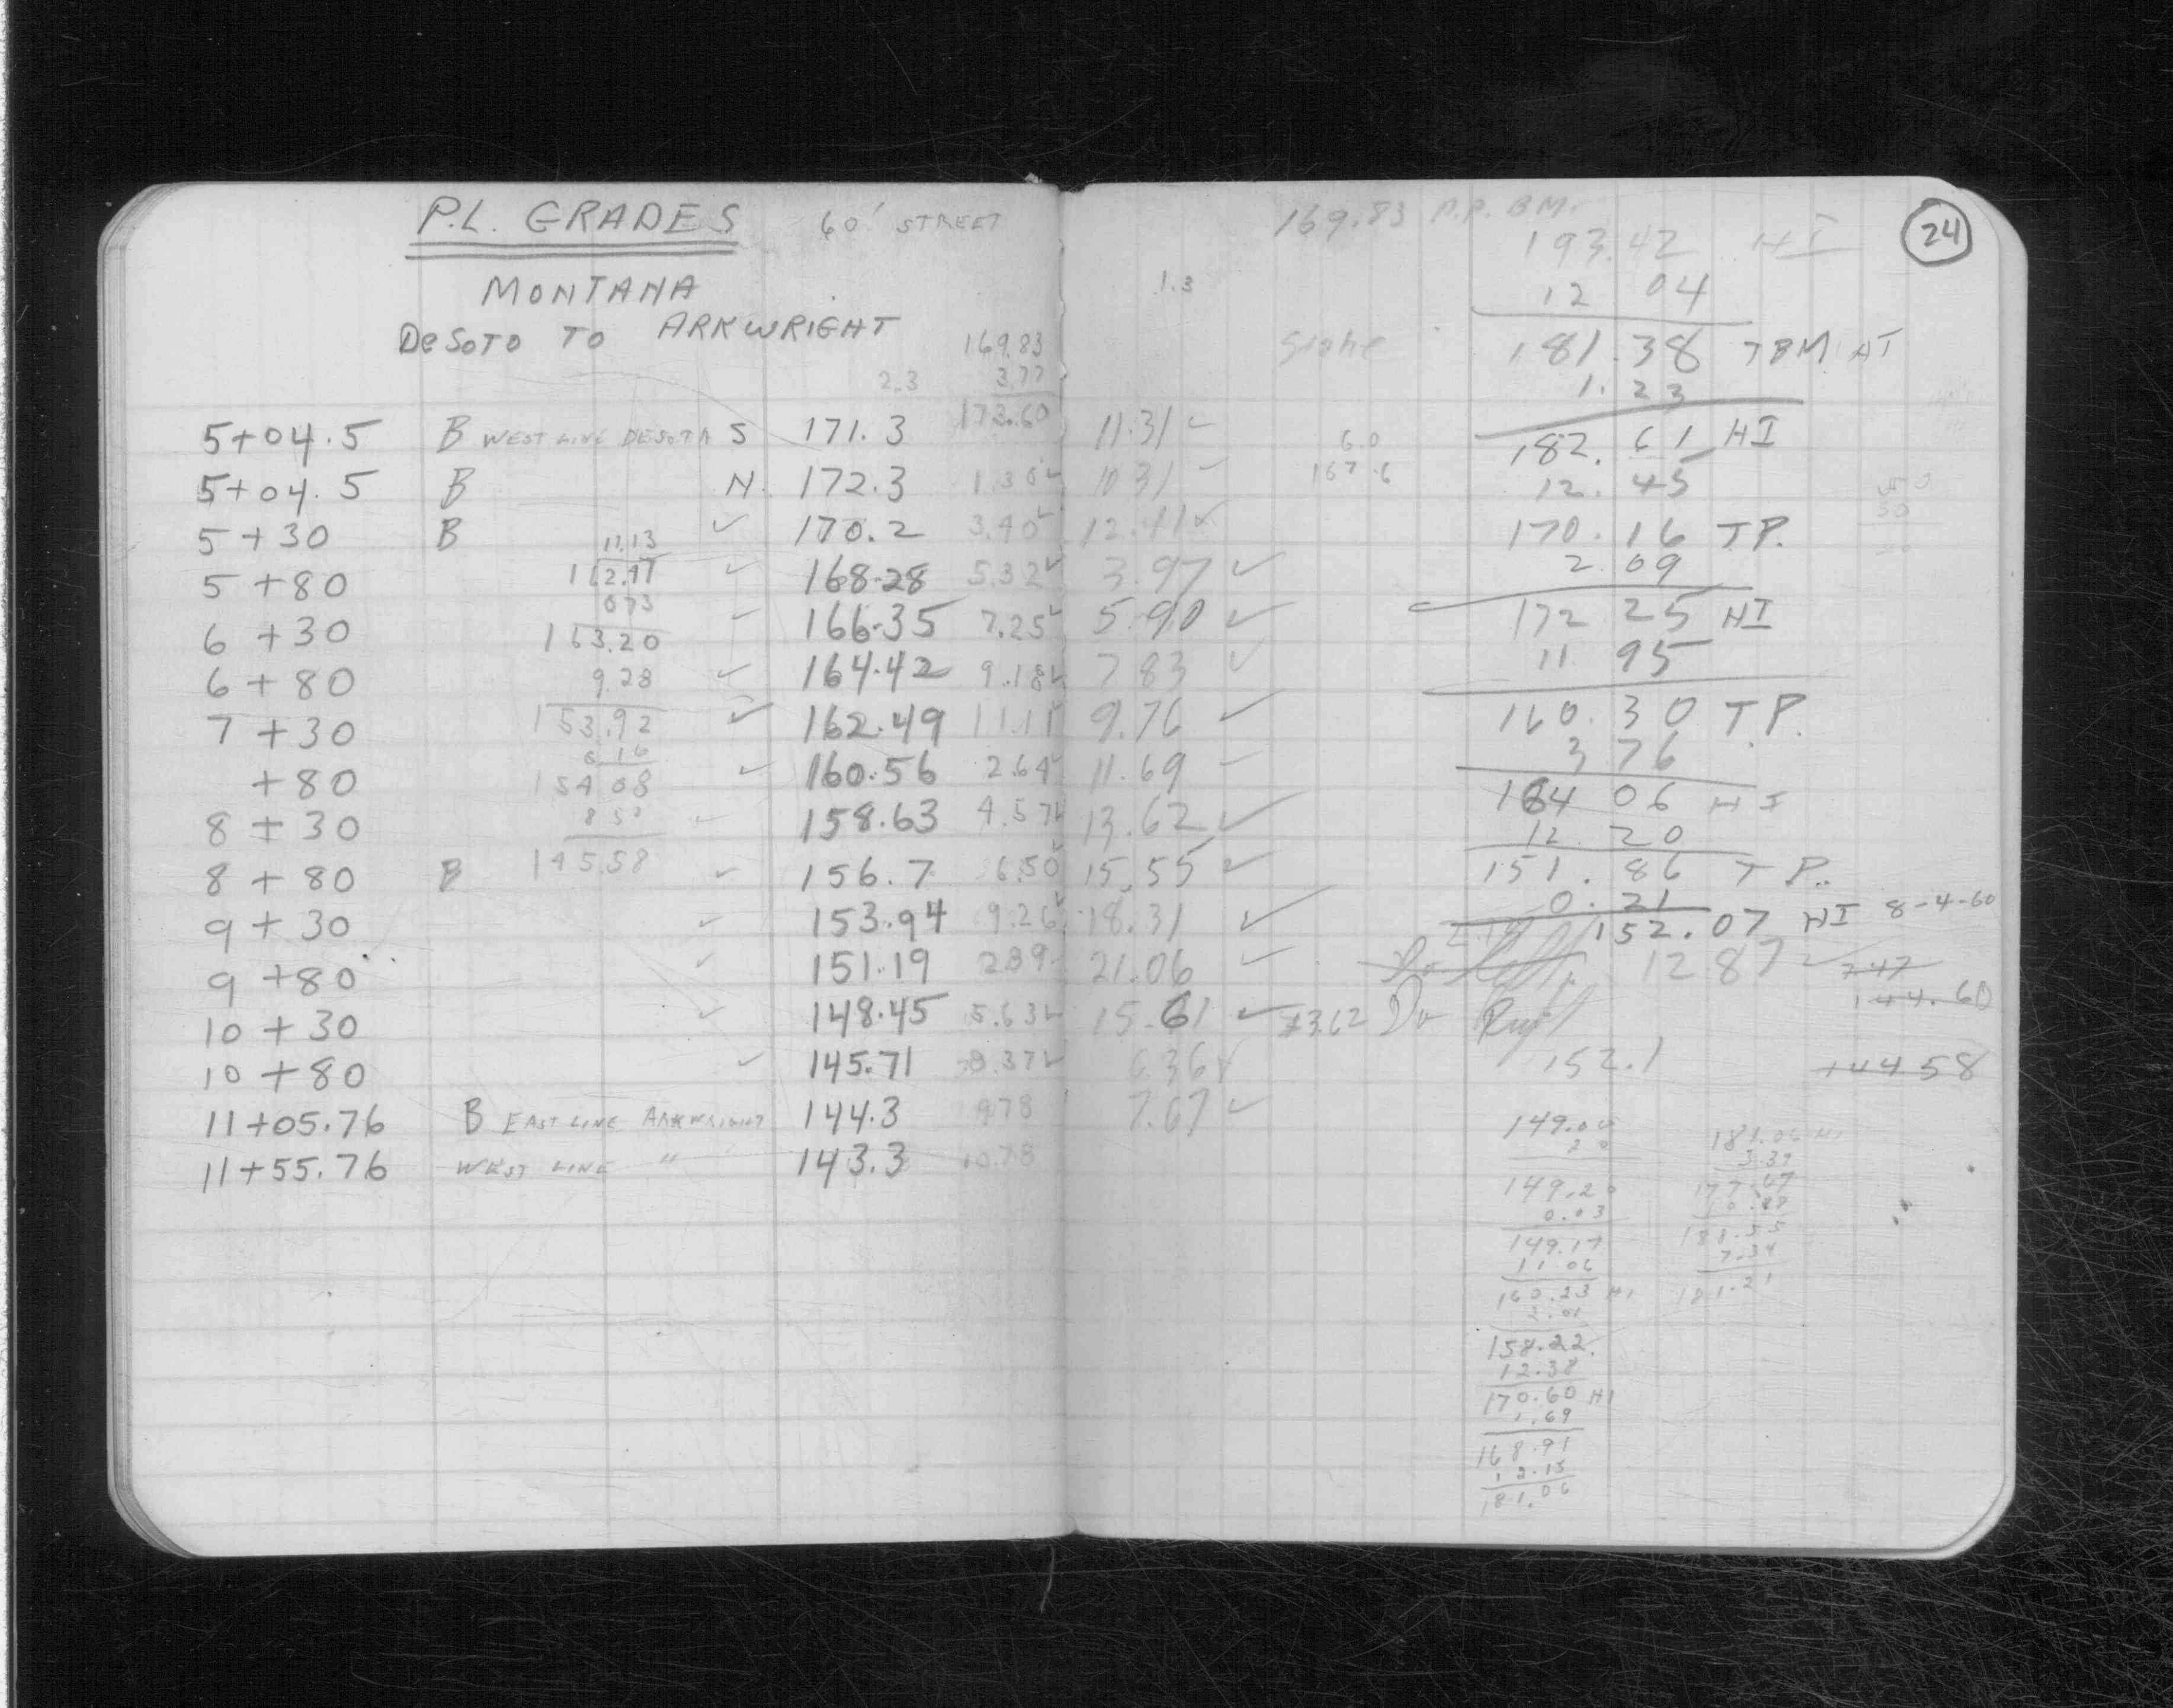 P.L. GRADES 60' STREET
MONTANA
DeSOTO TO ARKWRIGHT
169.83
2.3 3.77
173.60
5+04.5 B WEST LINE DESOTA S 171.3 11.31 ✓
5+04.5 B N. 172.3 1.30 ✓ 10.31 ✓
5+30 B ✓ 170.2 3.40 ✓ 12.41 ✓
11.13
5+80 162.47 ✓ 168.28 5.32 ✓ 3.97 ✓
073
6+30 163.20 ✓ 166.35 7.25 ✓ 5.90 ✓
6+80 9.28 ✓ 164.42 9.18 ✓ 7.83 ✓
7+30 153.92 ✓ 162.49 11.11 9.76 ✓
0.16
+80 154.08 ✓ 160.56 2.64 ✓ 11.69 ✓
8+30 8.50 ✓ 158.63 4.57 ✓ 13.62 ✓
8+80 B 145.58 ✓ 156.7 6.50 ✓ 15.55 ✓
9+30 ✓ 153.94 9.26 ✓ 18.31 ✓
9+80 ✓ 151.19 2.89 ✓ 21.06 ✓
10+30 ✓ 148.45 5.63 ✓ 15.61 ✓
10+80 ✓ 145.71 8.37 ✓ 6.36 ✓
11+05.76 B EAST LINE ARKWRIGHT 144.3 9.78 7.67 ✓
11+55.76 WEST LINE " 143.3 10.78
24
169.83 P.P. BM.
193.42 HI
1.3
12 04
Stake 181.38 TBM AT
1.23
182.61 HI
6.0
167.6
12.45
170.16 TP.
2.09
172 25 HI
11 95
160.30 T.P.
3 76
164 06 HI
12 20
151.86 T P.
0.21
152.07 HI 8-4-60
12 87 ✓ 7.47
144.60
13.62
152.1
144.58
149.00
20
149.20
0.03
149.17
11.06
160.23 HI
2.01
158.22
12.38
170.60 HI
1.69
168.91
12.15
181.06
181.06 HI
3.39
177.67
10.88
188.55
7.34
181.21